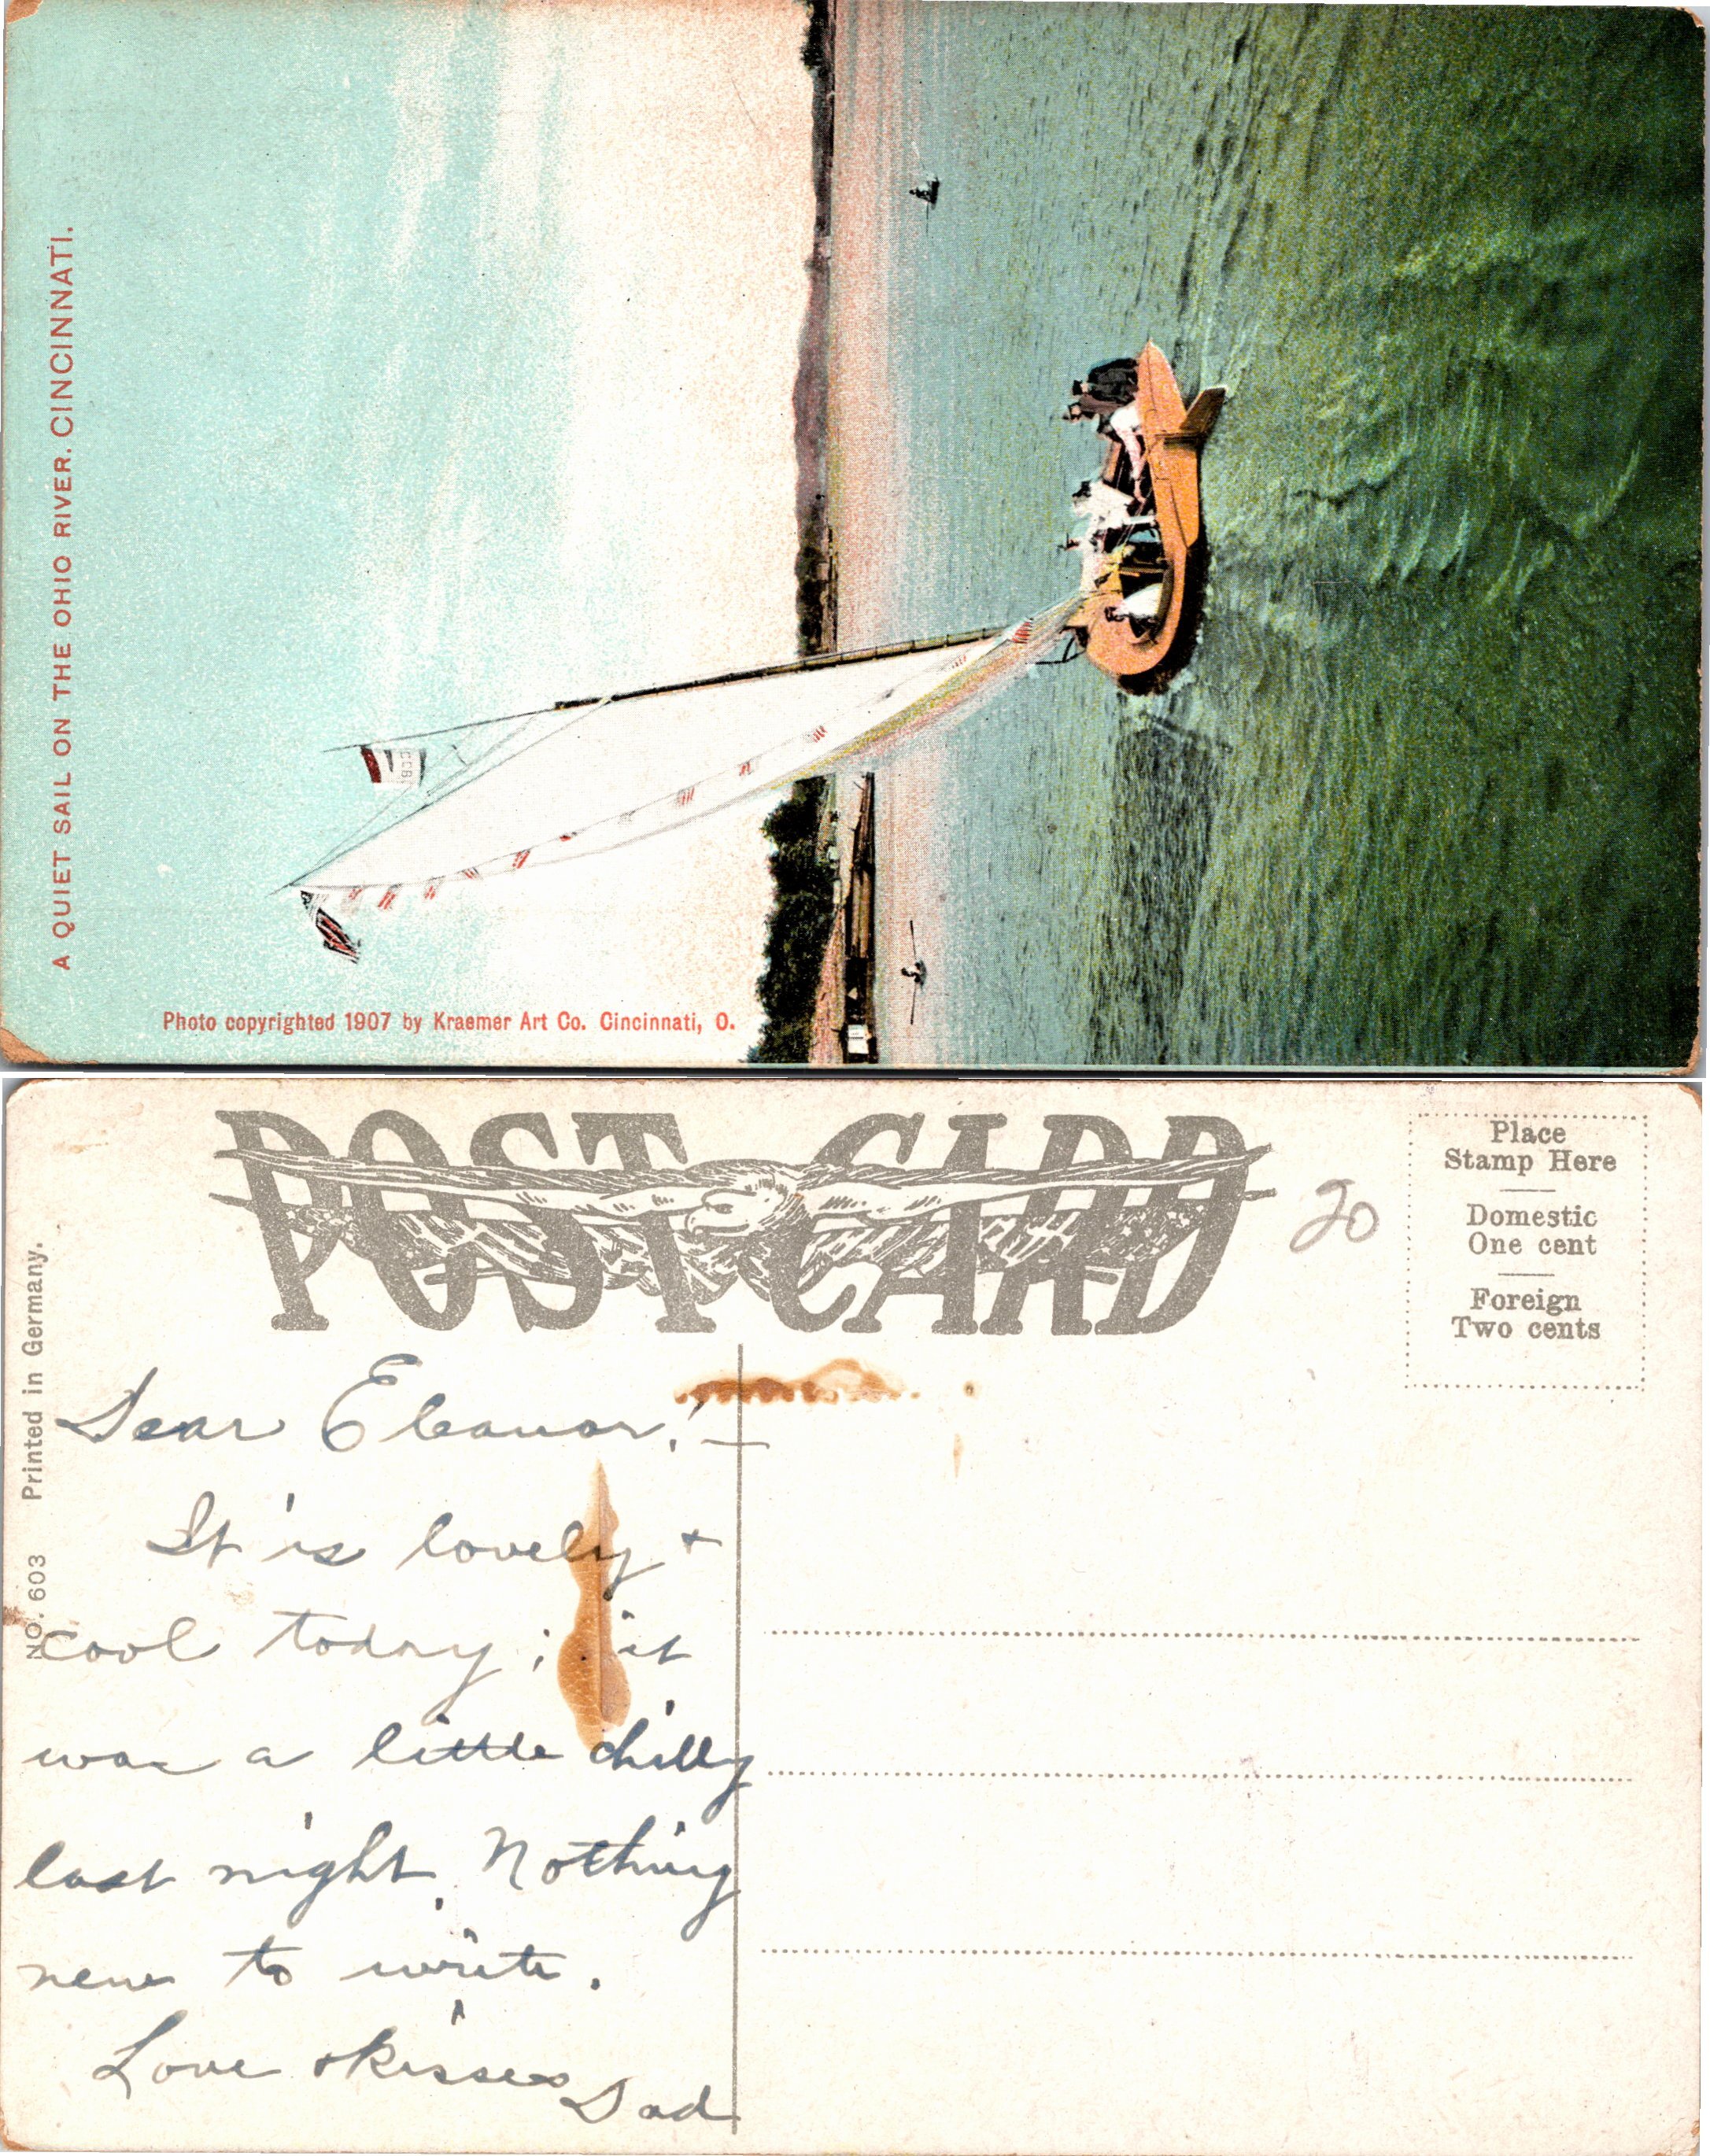 A QUIET SAIL ON THE OHIO RIVER. CINCINNATI.
CCBC
Photo copyrighted 1907 by Kraemer Art Co. Cincinnati, O.
POST CARD
20
Place
Stamp Here
Domestic
One cent
Foreign
Two cents
NO. 603 Printed in Germany.
Dear Eleanor! —
It is lovely +
cool today; it
was a little chilly
last night. Nothing
new to write.
Love + kisses
Dad